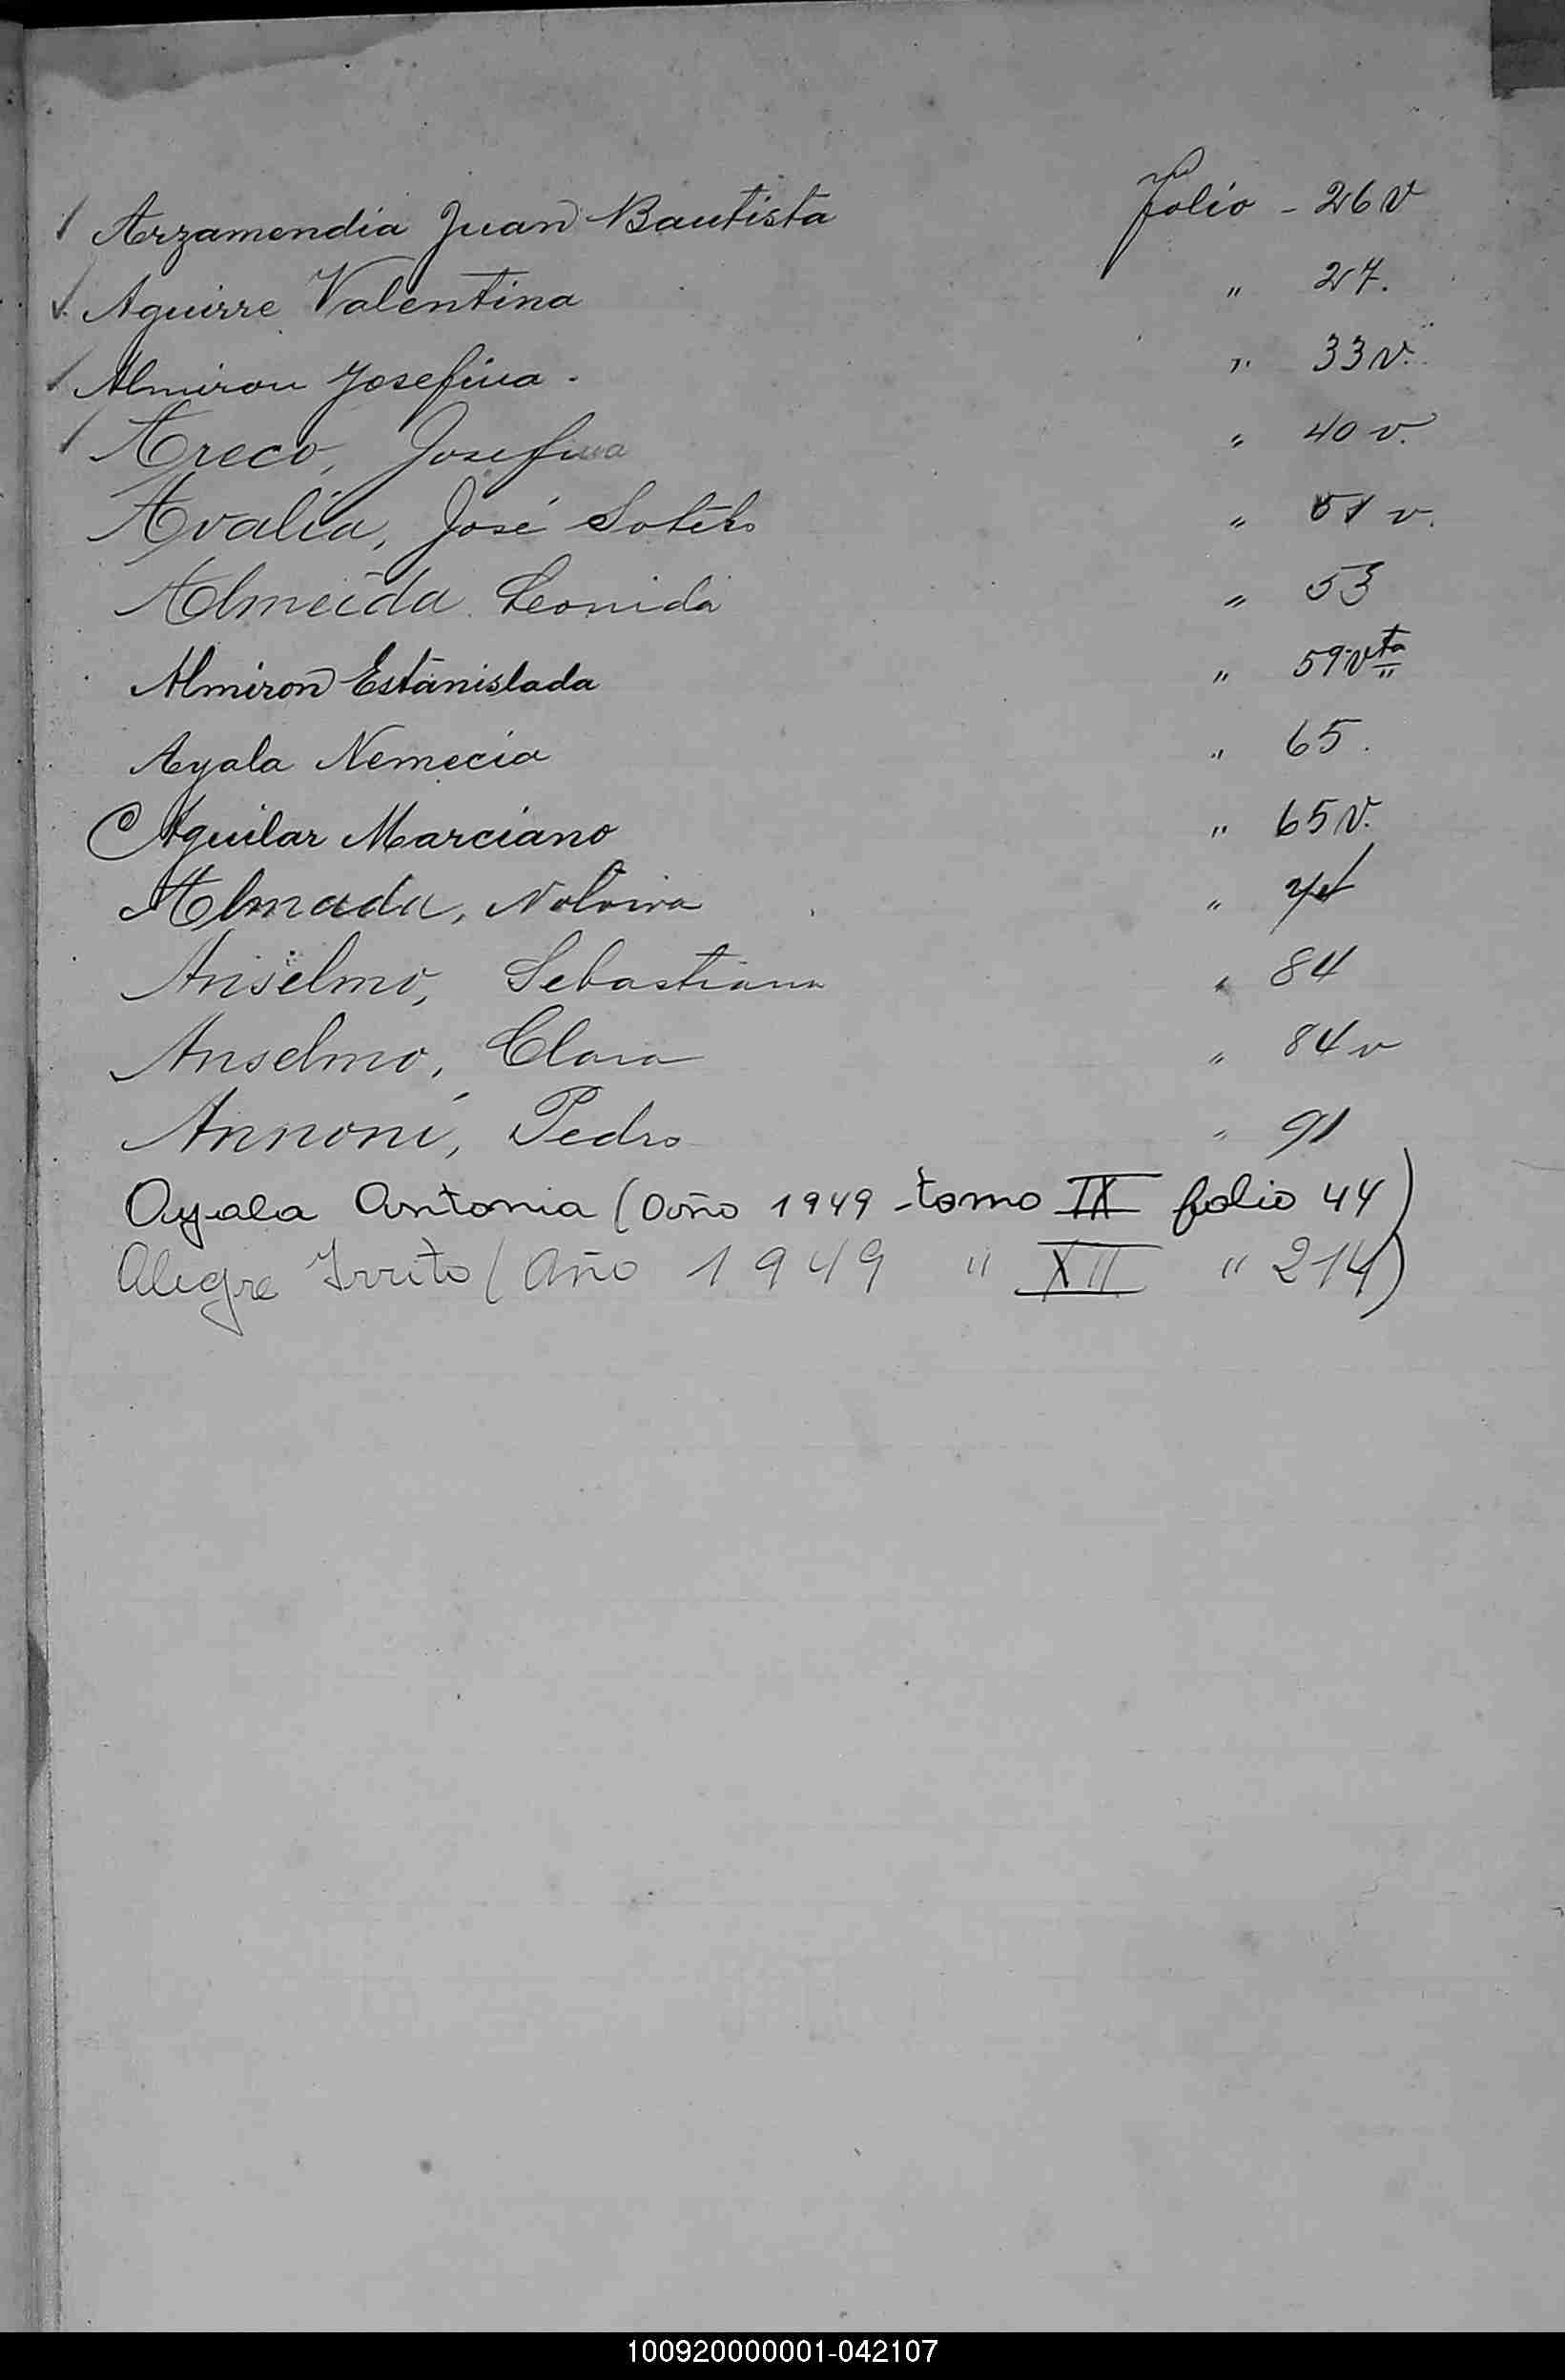 ✓ Arzamendia Juan Bautista folio - 26 v
✓ Aguirre Valentina " 27.
✓ Almiron Josefina. " 33 v.
✓ Areco, Josefina " 40 v.
Avalia, José Sotero " 51 v.
Almeida Leonida " 53
Almiron Estanislada " 59 vta
Ayala Nemecia " 65.
Aguilar Marciano " 65 v.
Almada, "
Anselmo, Sebastiana " 84
Anselmo, Clara " 84 v
Annoni, Pedro " 91
Ayala Antonia (Año 1949 - tomo IX folio 44)
Alegre (Año 1949 " XII " 214)
100920000001-042107